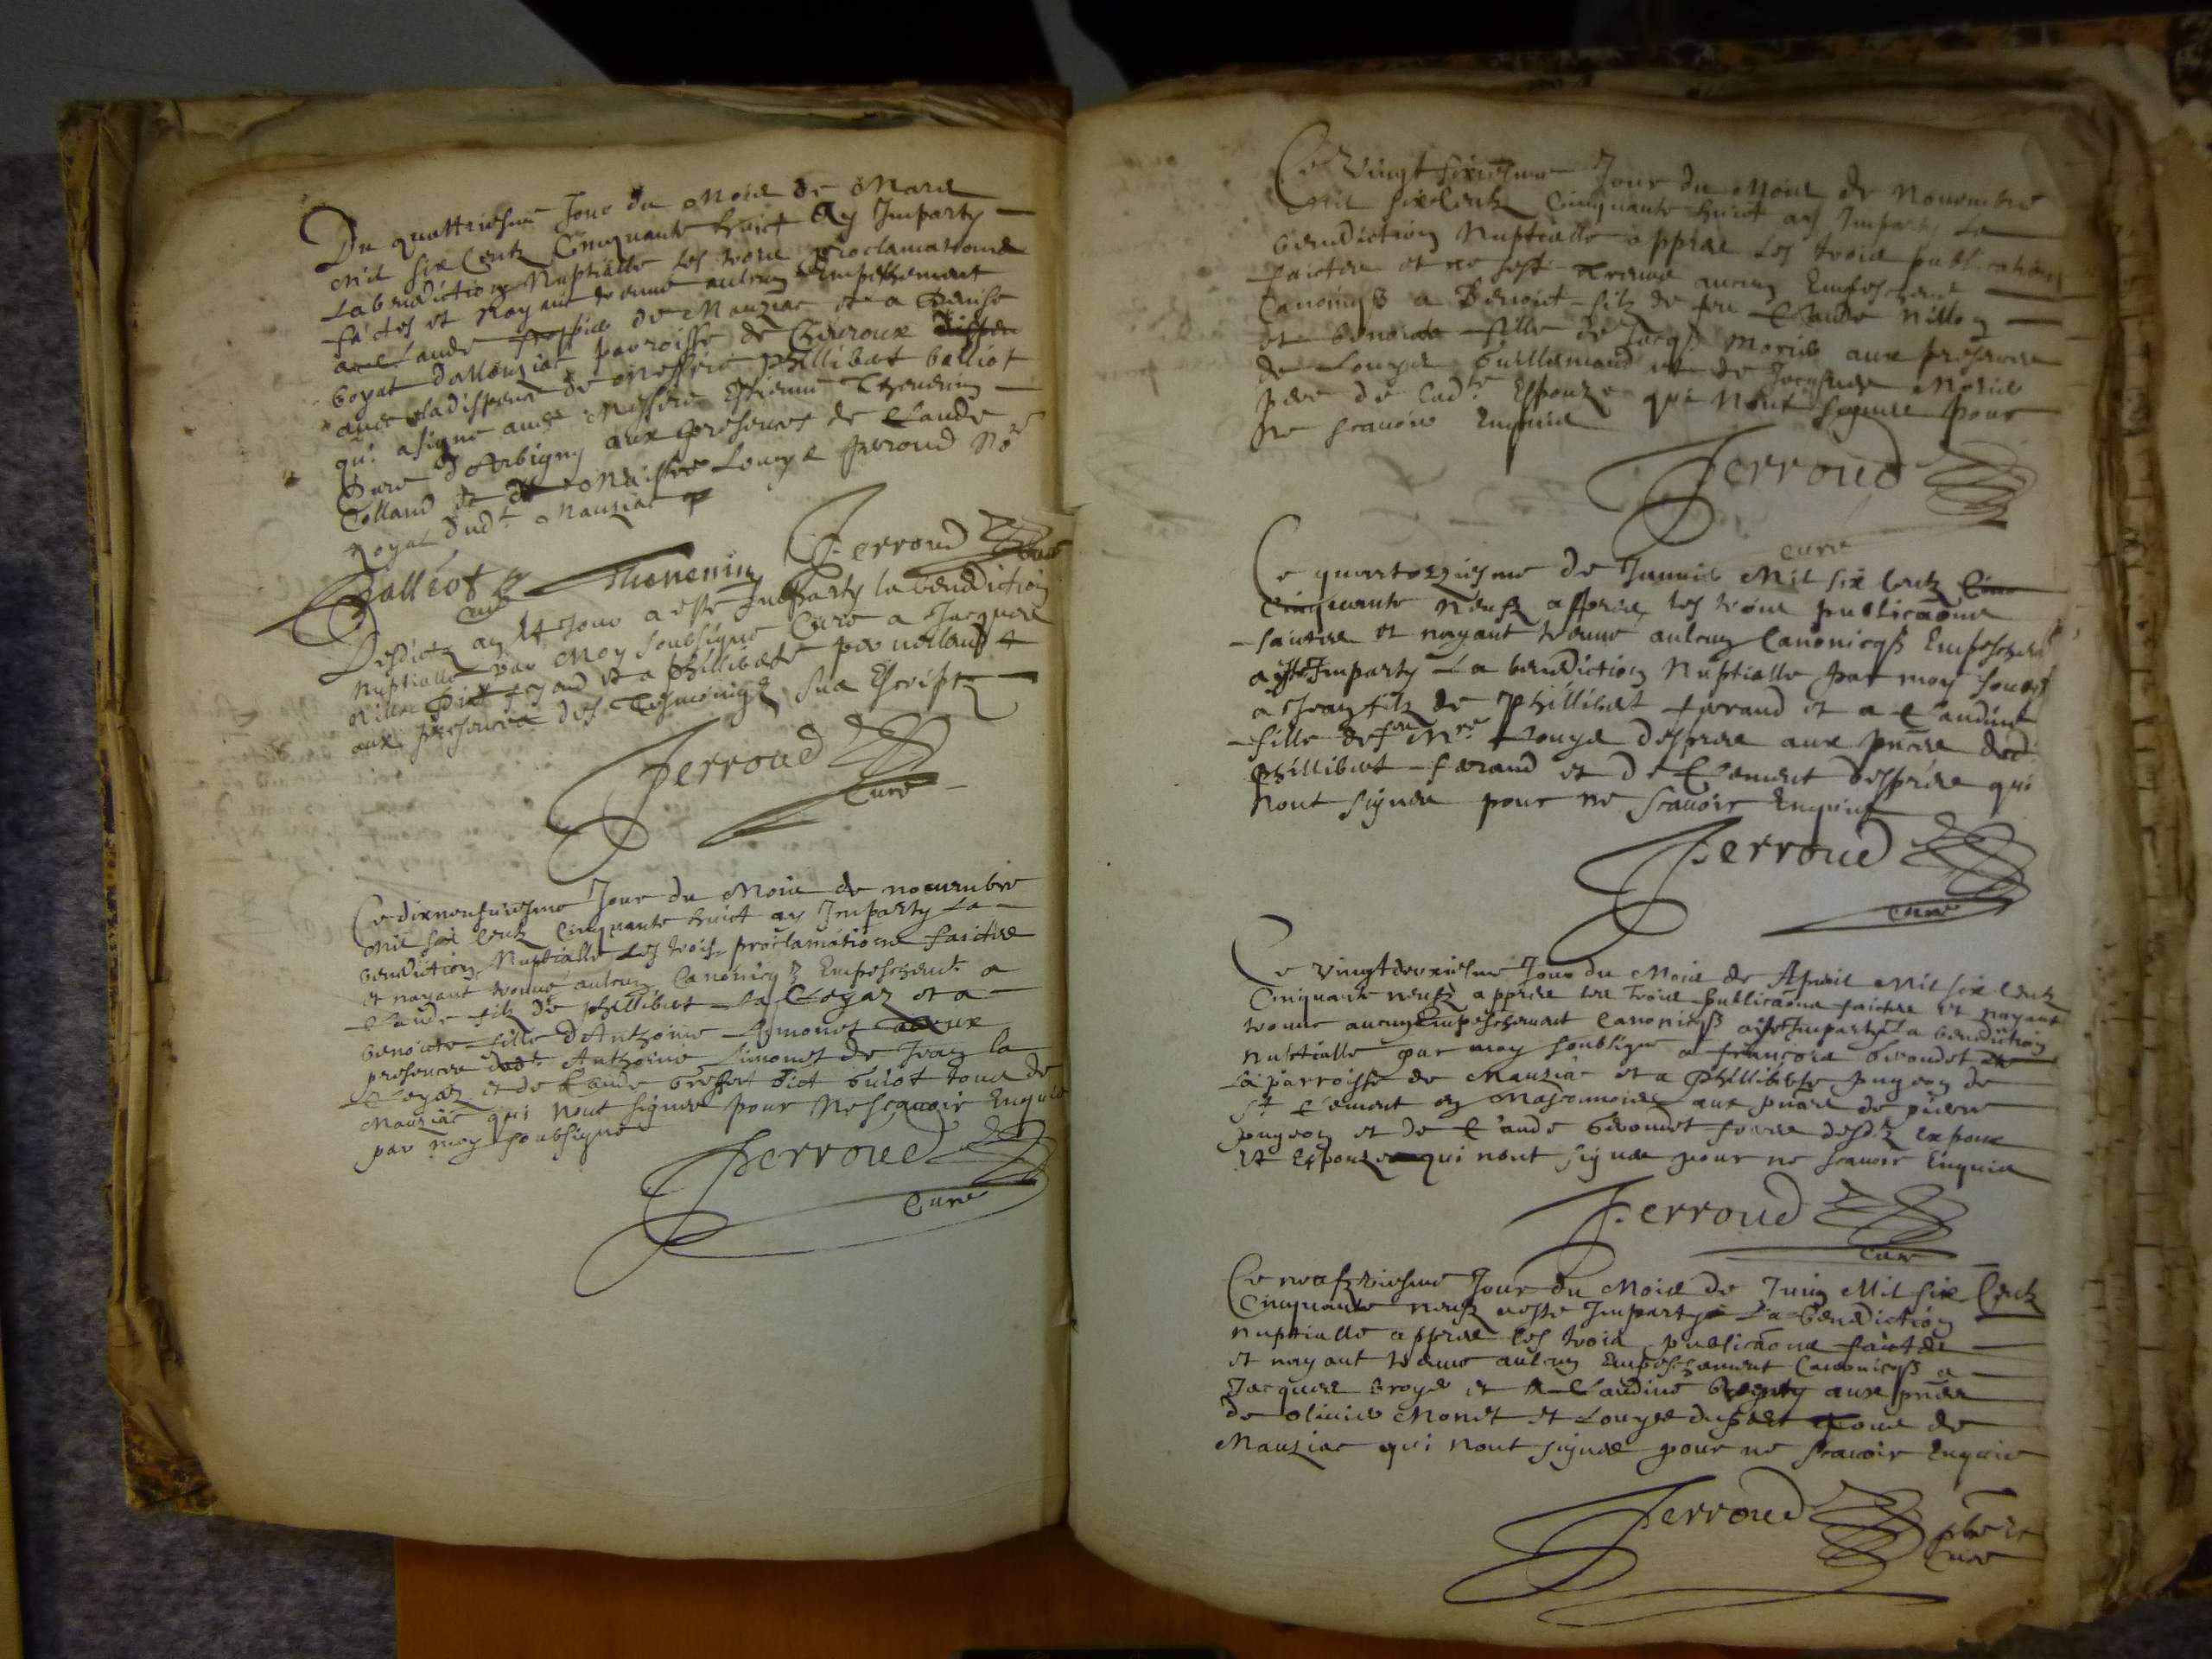 Du quattriesme Jour du Mois de Mars
Mil six Centz Cinquante huict Ay Imparty
La benediction Nuptialle les trois Proclamations
faictes et nayant trouvé aulcun Empeschement
a Claude de Mauziac et a Denise
boyat parroisse de Chevroux
avec la dispence de Messire Phillibert balliot
qui a signé avec Messire Estienne Thenenin
Curé d'Arbigny aux presences de Claude
Colland et de Maistre Louys Ferroud No.re
Royal dud.t Mauziac
Balliot Thenenin Ferroud
curé
Jour a esté Imparty la benediction
Nuptialle par Moy soubsigné Curé a Jacques
et a Philliberte
aux presences des Tesmoings sus Escriptz
Ferroud
Curé
Ce dixneufviesme Jour du Mois de novembre
Mil six Centz Cinquante huict ay Imparty La
benediction Nuptialle Les trois proclamations faictes
et nayant trouvé aulcun Canonicq Empeschem.t a
Claude filz de Phillibert La Cloyaz et a
benoiste fille d'Anthoine Simonet aux
presences dud.t Anthoine Simonet de Jean la
Cloyaz et de Claude dict tous de
Mauziac qui nont signés pour Ne sçavoir Enquis
par moy soubsigné
Ferroud
Curé
Ce Vingt sixiesme Jour du Mois de Novembre
Mil six Centz Cinquante huict ay Imparty La
benediction Nuptialle appres Les trois publications
faictes et ne sest treuvé aucun Empeschem.t
Canonicq a Benoist filz de feu Claude Nillon
et benoiste fille de Jacq. Morel aux presences
de Louys Guillemaud et de Jacques Morel
pere de Lad.te Espouze qui Nont signés pour
Ne scavoir Enquis
Ferroud
curé
Ce quartorziesme de Janvier Mil six Centz Cinc
Cinquante neufz appres les trois publicaons
faictes et nayant trouvé aulcun Canonicq Empeschem.t
a esté Imparty La benediction Nuptialle par moy soubs.
a Jean filz de Phillibert feraud et a Claudine
fille de feu M.re Louys despres aux pnces dud.
Phillibert feraud et de Clement despres qui
Nont signés pour ne scavoir Enquis
Ferroud
Curé
Ce vingtdeuxiesme Jour du Mois de Apvril Mil six Centz
Cinquante neufz appres les trois publicaons faictes et nayant
trouvé aucun Empeschement canonicq a esté Imparty La benediction
Nuptialle par moy soubsigné a françois Girondet de
La parroisse de Mauziac et a Phillibette pugeon de
S.t Clement en Masconnois aux pnces de piere
pugeon et de Claude Girondet freres desd. Expoux
et Expouze qui nont signés pour ne scavoir Enquis
Ferroud
Curé
Ce neufzviesme Jour du Mois de Juin Mil six Centz
Cinquante neufz a esté Imparty La Benediction
nuptialle appres les trois publicaons faictes
et nayant trouvé aulcun Empeschement Canonicq a
Jacques Broyé et a Claudine aux pnces
de olivier Monet et Louys dupret tous de
Mauziac qui Nont signés pour ne scavoir Enquis
Ferroud pbre et
Curé